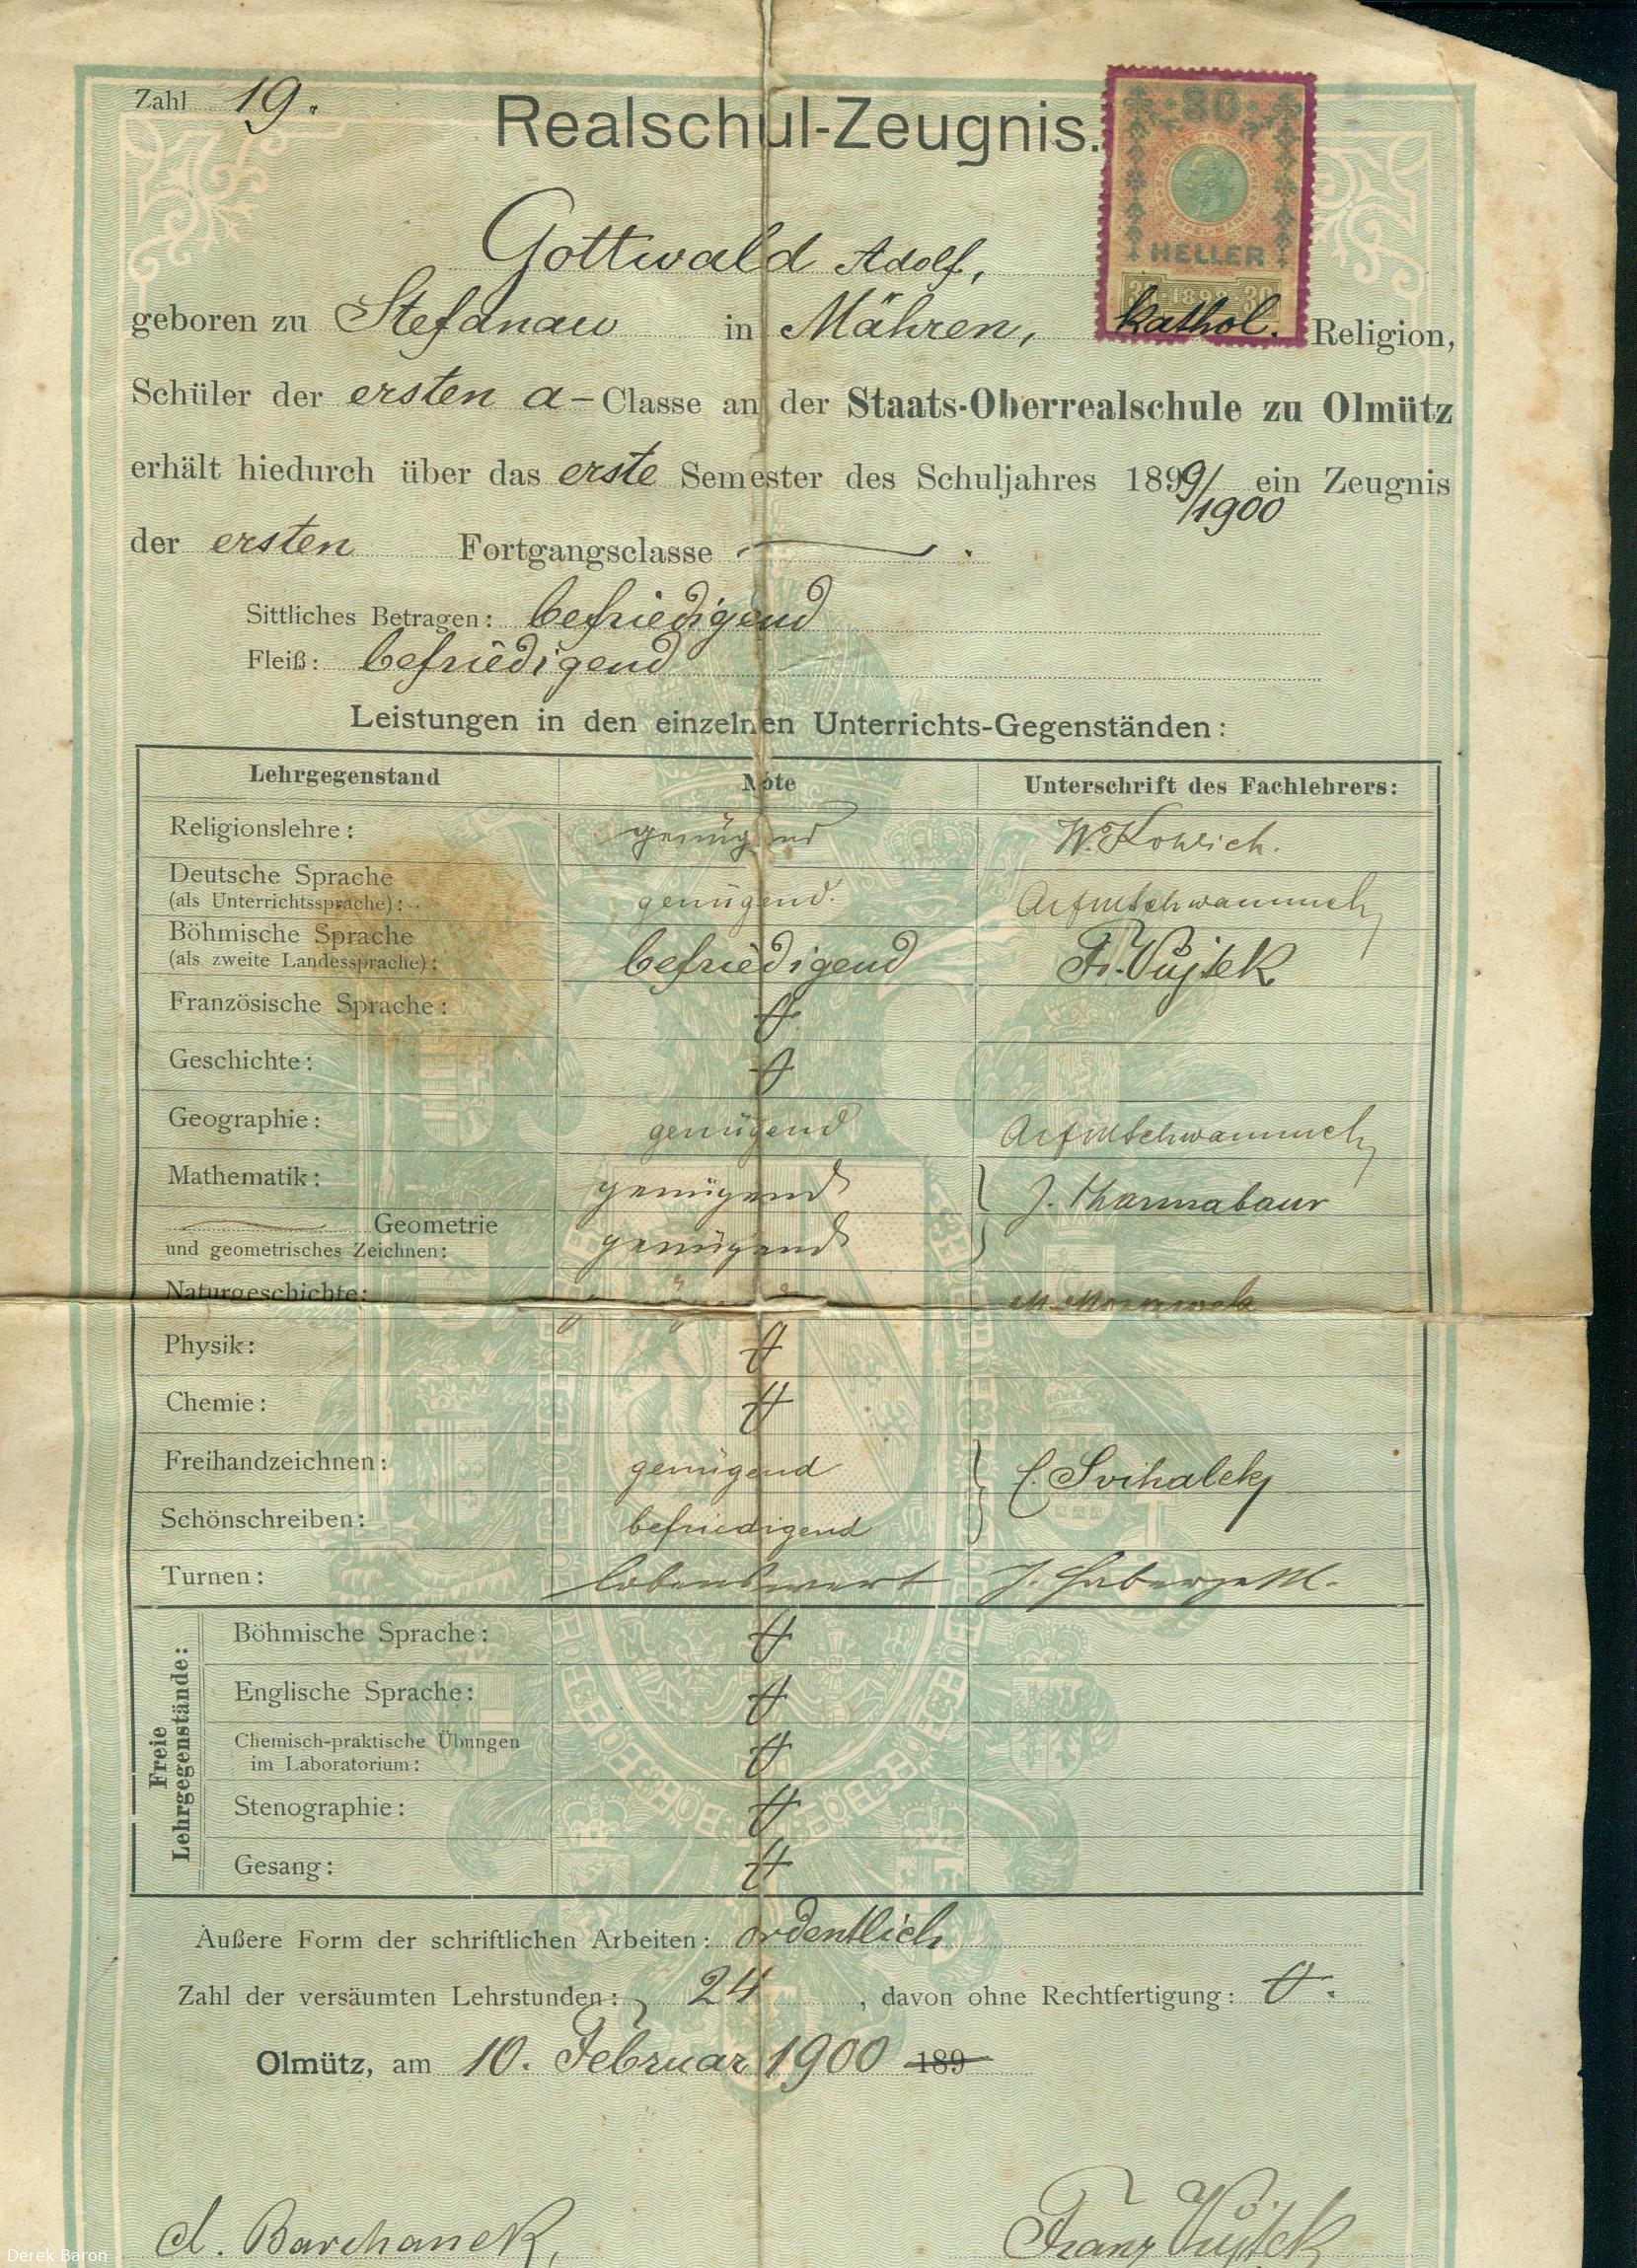 Zahl 19.
Realschul-Zeugnis.
30
HELLER
30 · 1898 · 30
Gottwald Adolf,
geboren zu Stefanau in Mähren, kathol. Religion,
Schüler der ersten a-Classe an der Staats-Oberrealschule zu Olmütz
erhält hiedurch über das erste Semester des Schuljahres 1899/1900 ein Zeugnis
der ersten Fortgangsclasse
Sittliches Betragen: befriedigend
Fleiß: befriedigend
Leistungen in den einzelnen Unterrichts-Gegenständen:
Lehrgegenstand Note Unterschrift des Fachlehrers:
Religionslehre: genügend
Deutsche Sprache
(als Unterrichtssprache): genügend.
Böhmische Sprache
(als zweite Landessprache): befriedigend Fr. Vůjtek
Französische Sprache:
Geschichte:
Geographie: genügend
Mathematik: genügend
Geometrie
und geometrisches Zeichnen: genügend
Naturgeschichte:
Physik:
Chemie:
Freihandzeichnen: genügend
Schönschreiben: befriedigend
Turnen: lobenswert
Freie
Lehrgegenstände:
Böhmische Sprache:
Englische Sprache:
Chemisch-praktische Übungen
im Laboratorium:
Stenographie:
Gesang:
Äußere Form der schriftlichen Arbeiten: ordentlich
Zahl der versäumten Lehrstunden: 24, davon ohne Rechtfertigung: 0.
Olmütz, am 10. Februar 1900 189
A. Barchanek, Franz Vůjtek
Derek Baron